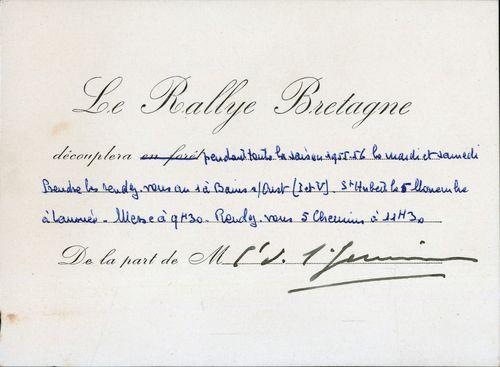 Le Rallye Bretagne
découplera en forêt pendant toute la saison 1955-56 le mardi et samedi
Prendre les rendez-vous au 1 à Bains s/Oust (I et V). St Hubert le 5 Novembre
à Lanouée - Messe à 9H30 - Rendez-vous 5 Chemins à 11H30
De la part de M